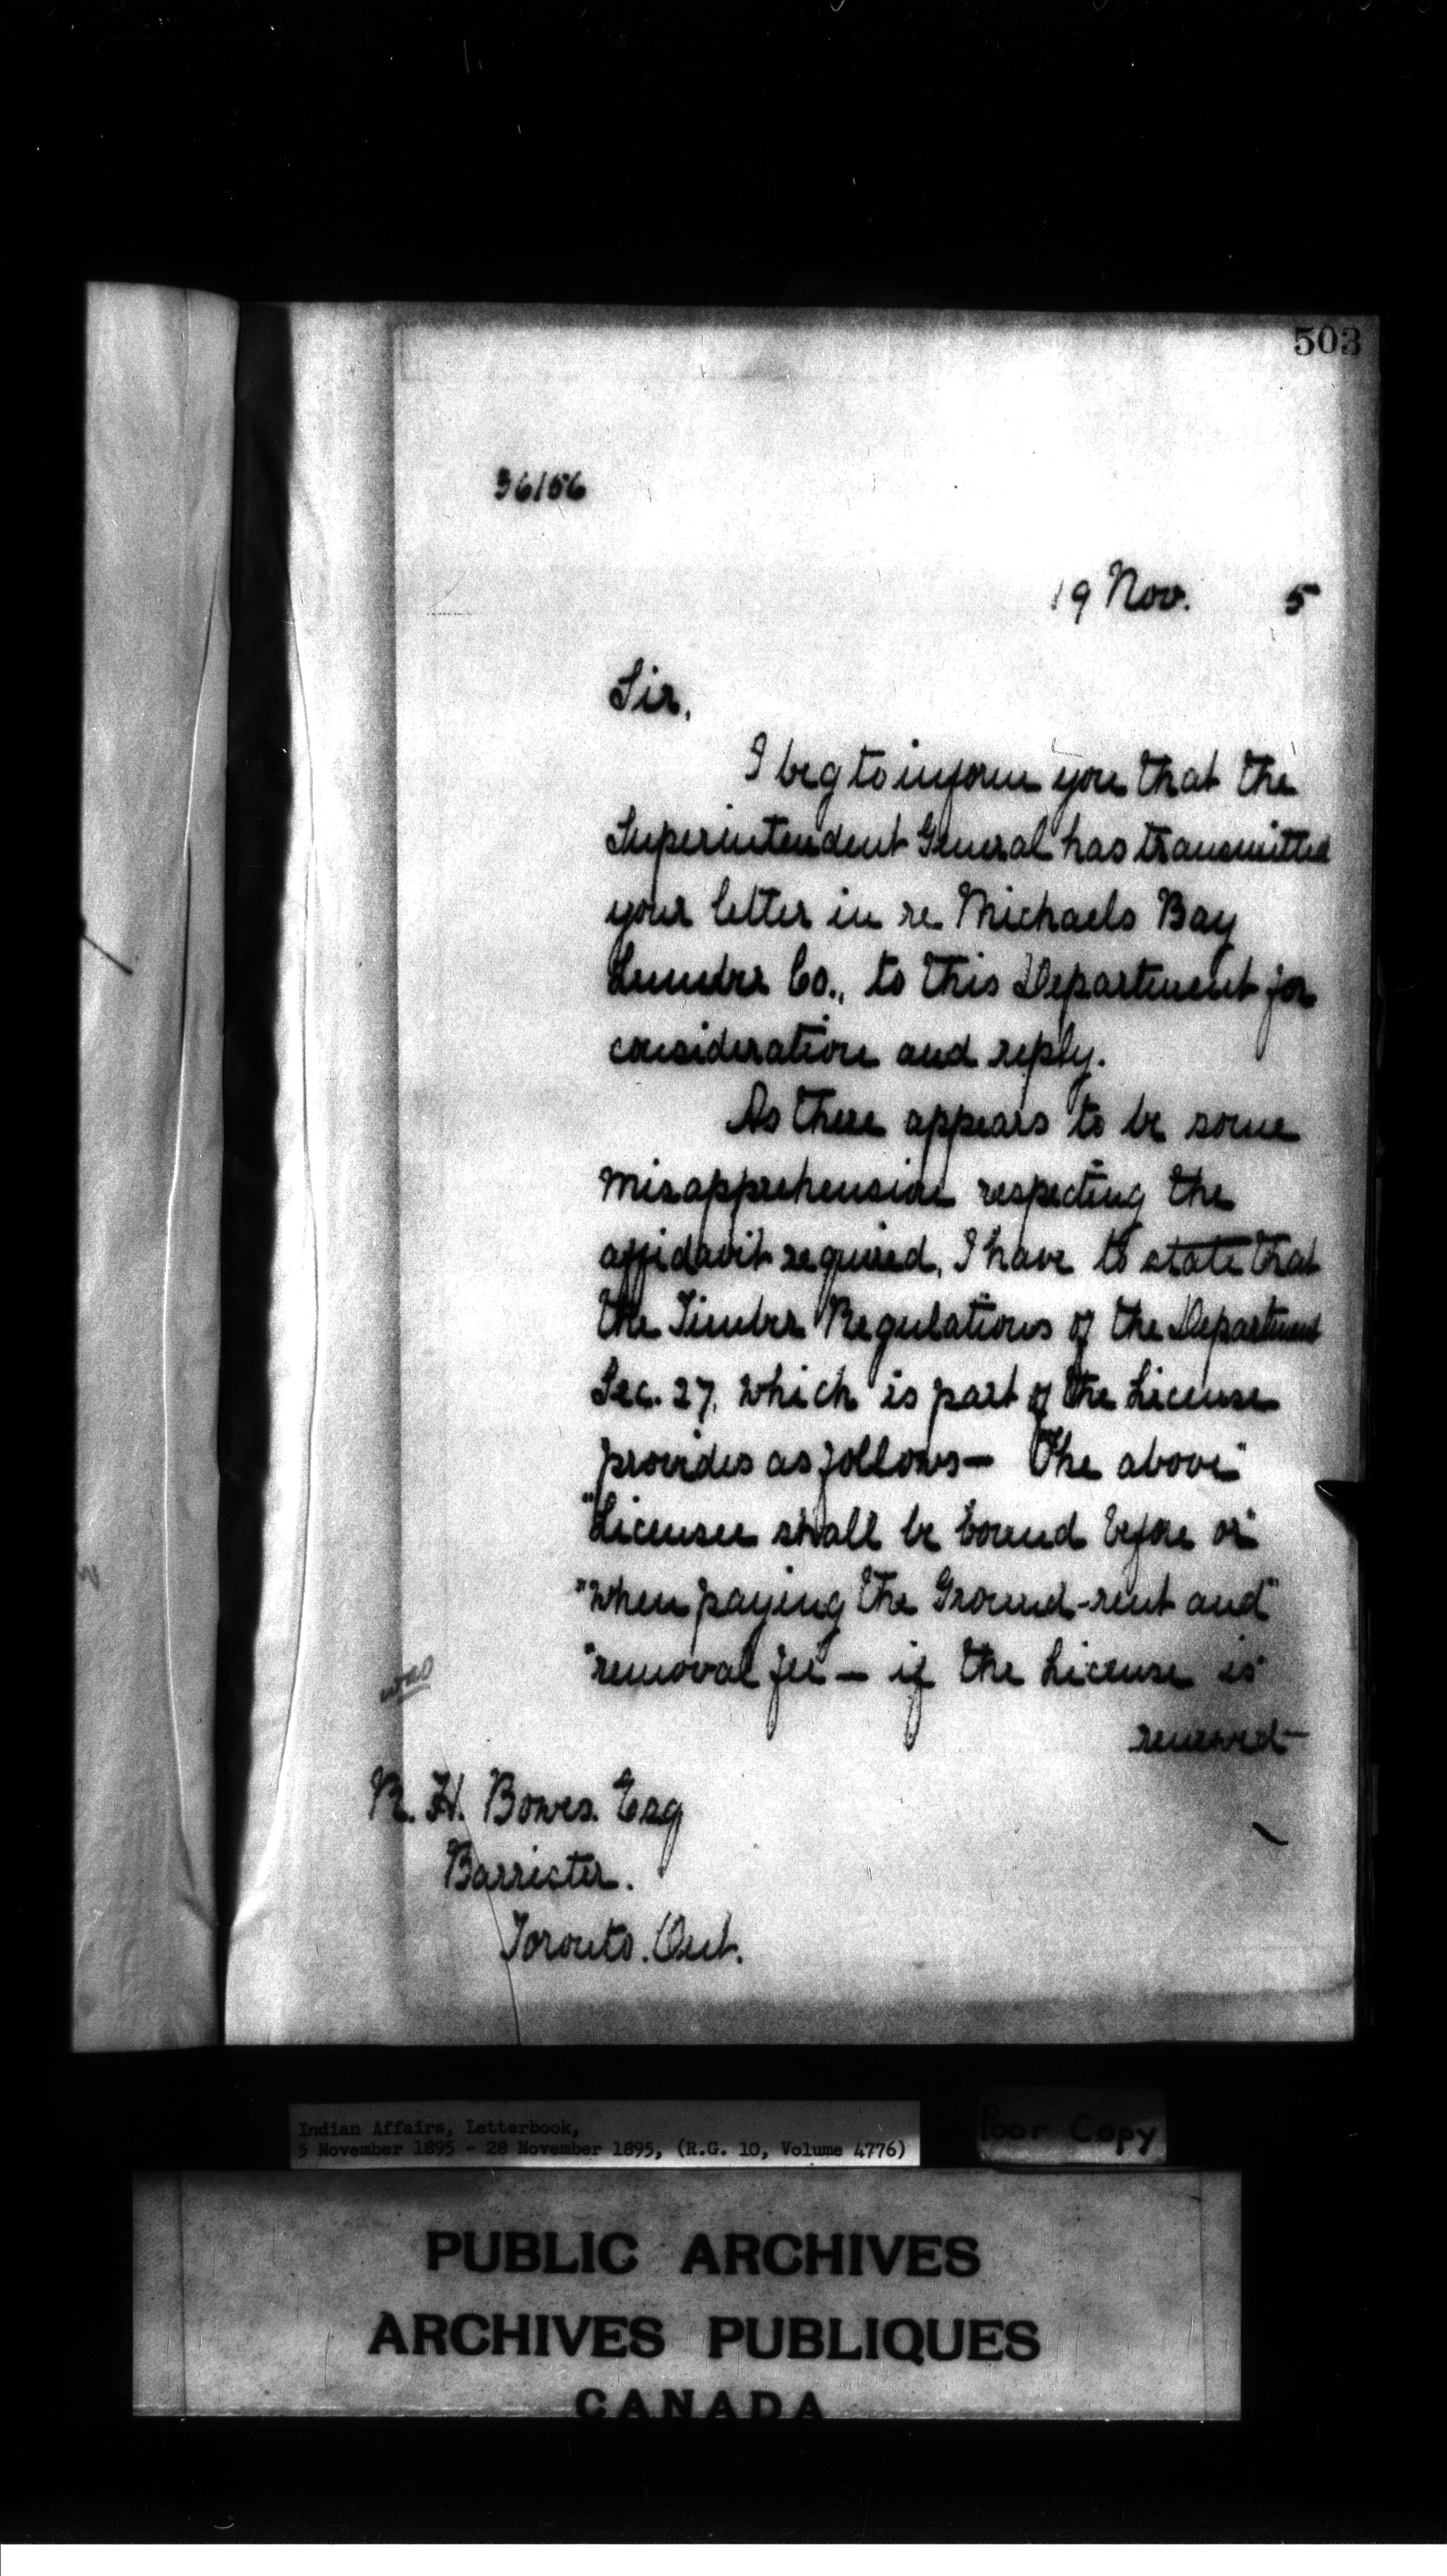 503
36156
19 Nov. 5
Sir,
I beg to inform you that the
Superintendent General has transmitted
your letter in re Michaels Bay
Lumber Co., to this Department for
consideration and reply.
As there appears to be some
misapprehension respecting the
affidavit required, I have to state that
the Timber Regulations of the Department
Sec. 27, which is part of the License
provides as follows— The above"
"Licensee shall be bound before or"
"when paying the Ground-rent and"
"removal fee — if the License is"
renewed—
R. H. Bowes. Esq
Barrister.
Toronto. Ont.
Indian Affairs, Letterbook,
5 November 1895 - 28 November 1895, (R.G. 10, Volume 4776)
Poor Copy
PUBLIC ARCHIVES
ARCHIVES PUBLIQUES
CANADA